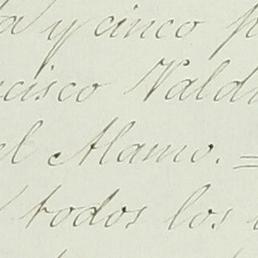 y cinco
cisco Vald
el Alamo. =
todos los